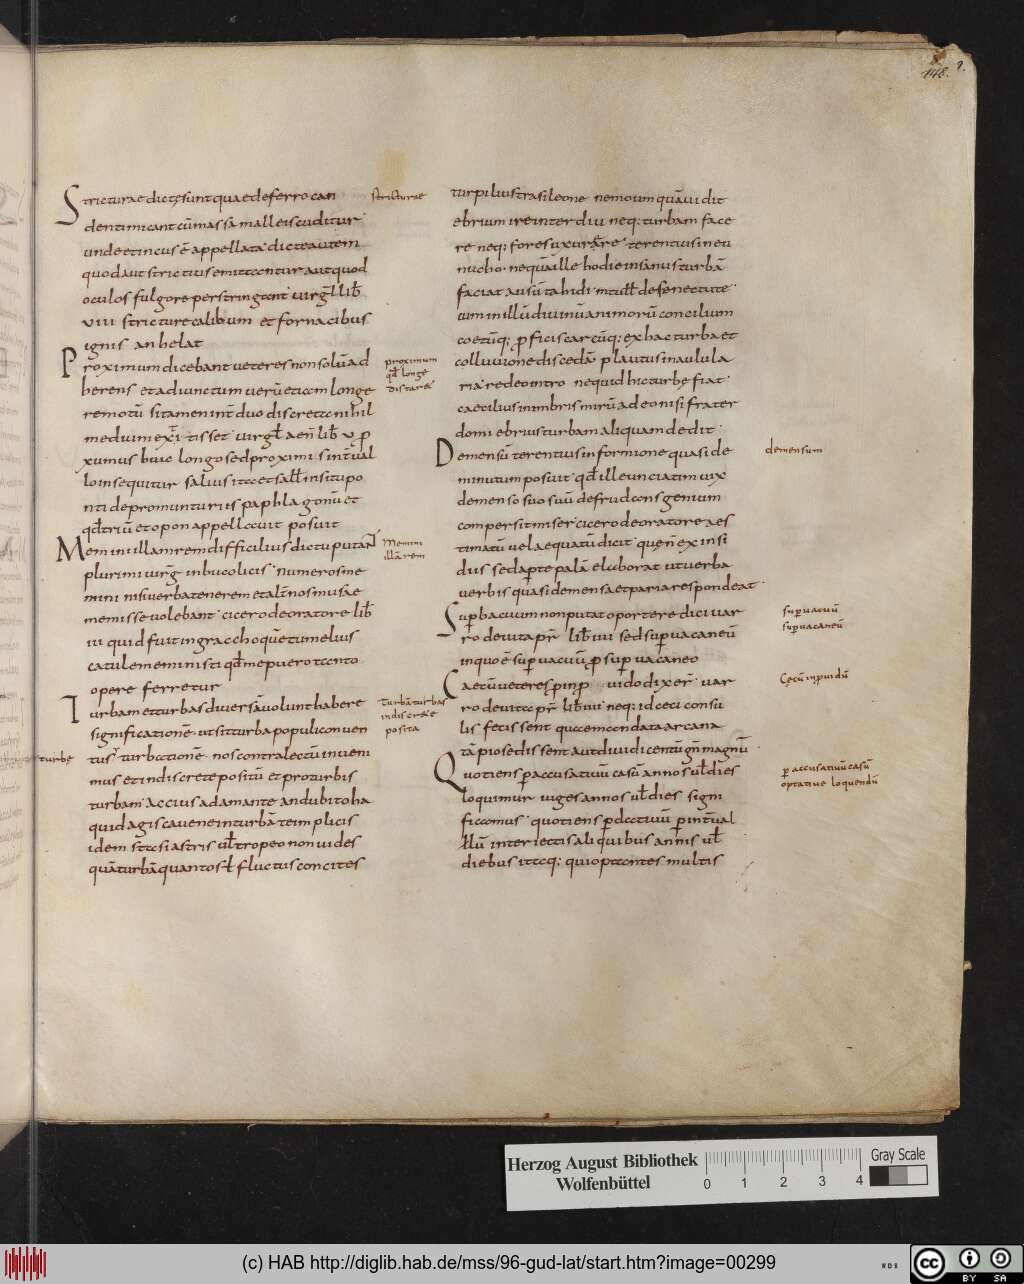 148.
Stricturae dictę sunt quae de ferro can
denti micant cū massā malleis cuditur
unde et incus ē appellata dicte autem
quod aut strictius emittantur aut quod
oculos fulgore perstringant uirgł lib
VIII stricture calibum et fornacibus
ignis anhelat
Proximum dicebant ueteres non solū ad
herens et adiunctum uerū etiam longe
remotū si tamen int duo discreta nihil
medium
xumus huic longo sed proximi
lo insequitur salius
nti de promunturiis paphlagonū et
qđ triū et opon appellauit posuit
Memini illam rem difficilius dictu putāt
plurimi uirg in bucolicis numeros me
mini nisi uerba tenerem et alt nos musae
memisse uolebant cicero de oratore lib
III quid fuit in graccho quē tu melius
catule meministi qđ me puero tanto
opere ferretur
Turbam et turbas diuersā uolunt habere
significationē ut sit turba populi conuen
tus turbationē nos contra lectū inueni
mus et indiscrete positū et pro turbis
turbam Accius adamante an dubito ha
quid agis caue ne in turbā te implicis
idem
quā turbā quantos fluctus concites
stricturae
proximum
qđ longe
distaret
Memini
illā rem
Turbā turbas
indiscrete
posita
turbę
turpilius trasileone nemoium quā ui dit
ebrium ire interdiu neq; turbam face
re neq; fores exurare terentius in eu
nucho nequā ille hodie insanus turbā
faciat ausū tahidi m tull de senectute
cum in illū diuinū animorū concilium
coetūq; pficiscar cūq; ex hac turba et
colluuione discedā plautus in aulula
ria redeo intro ne quid hic turbę fiat
caecilius in imbris mirū adeo nisi frater
domi ebrius turbam aliquam dedit
Demensū terentius in formione quasi de
minutum posuit qđ ille unciatim uix
demenso suo suū defrudans genium
compersit miser cicero de oratore aes
timatū uel aequatū dicit quę n ex insi
diis sed aperte palā elaborat ut uerba
uerbis quasi demensa et paria respondeat
Supbacuum non putat oportere dici uar
ro de uita pr lib IIII sed sup uacaneū
in quo ē sup uacuū p sup uacaneo
Caecū ueteres p inp uido dixer uar
ro de uita pr lib IIII neq; id ceci consu
lis fecissent quae mandata arcana
tā pio sedissent aut diuidi centū gn magnū
Quotiens p accusatiuū casū annos uł dies
loquimur uiges annos uł dies signi
ficamus quotiens p datiuū p interual
llū interiectis aliquibus annis uł
diebus itaq; qui optantes multis
demensum
supuacuū
supuacaneū
Cęcū inpuidū
p accusatiuū casū
optatiue loquendū
Herzog August Bibliothek
Wolfenbüttel
0 1 2 3 4
Gray Scale
(c) HAB http://diglib.hab.de/mss/96-gud-lat/start.htm?image=00299
WDB
cc BY SA